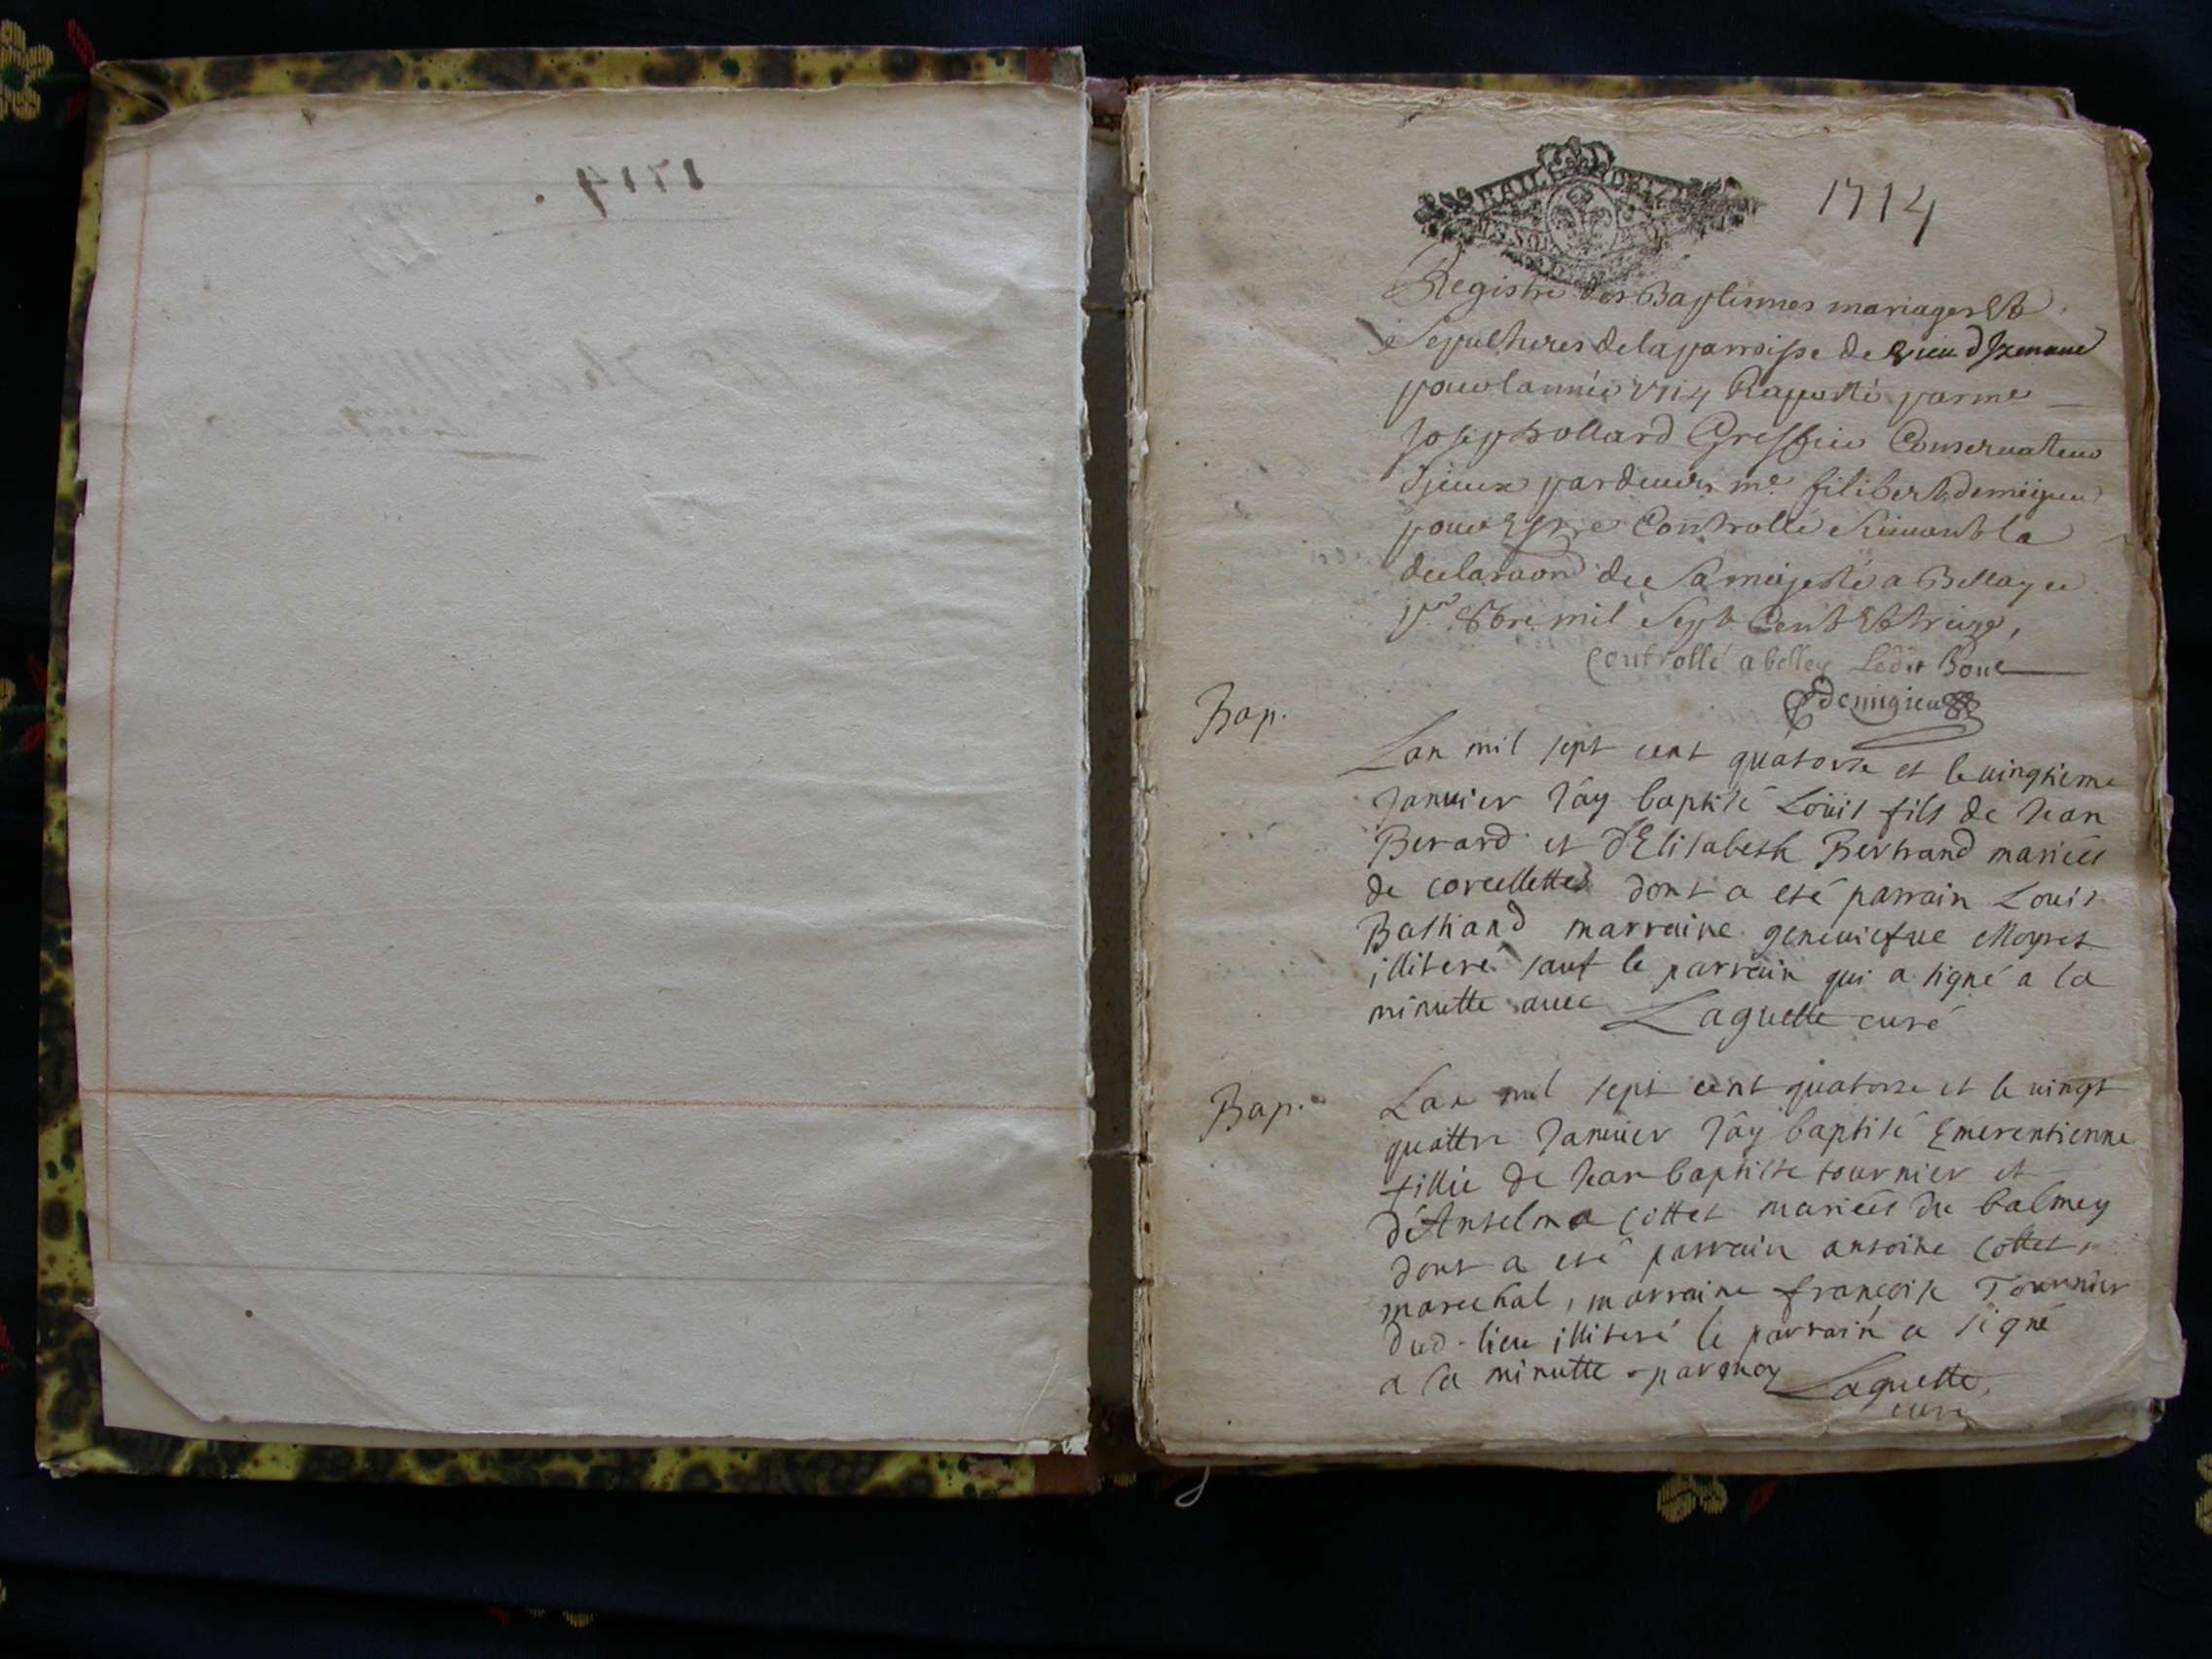 1714
1714
Registre des Baptismes mariages Et
Sepultures de la parroisse de Vieu d'Izenave
pour lannée 1714 Raporté par me
Joseph Bollard Greffier Conservateur
pardevers me. filibert demigieu
pour Estre Controllé Suivant la
declaraon de Sa majesté a Bellay ce
pr. 8bre. mil Sept Cent Et treize,
Controllé a belley Led. Jour
demigieu
Bap.
Lan mil sept cent quatorze et le uingtieme
Januier J'ay baptisé Loüis fils de Jean
Berard et d'Elisabeth Bertrand mariées
de corcellettes dont a esté parrain Louis
Bastiand marraine geneuiefue Moyret
illiteré sauf le parrain qui a signé a la
minutte auec Laguette curé
Bap.
Lan mil sept cent quatorze et le uingt
quattre Januier J'ay baptisé Emerentienne
fillie de Jean baptiste tournier et
d'Anselma Cottet mariées du balmey
dont a esté parrain antoine Cottet,
marechal, marraine françoise Tournier
dud. lieu illiteré le parrain a signé
a la minutte par moy Laguette,
curé